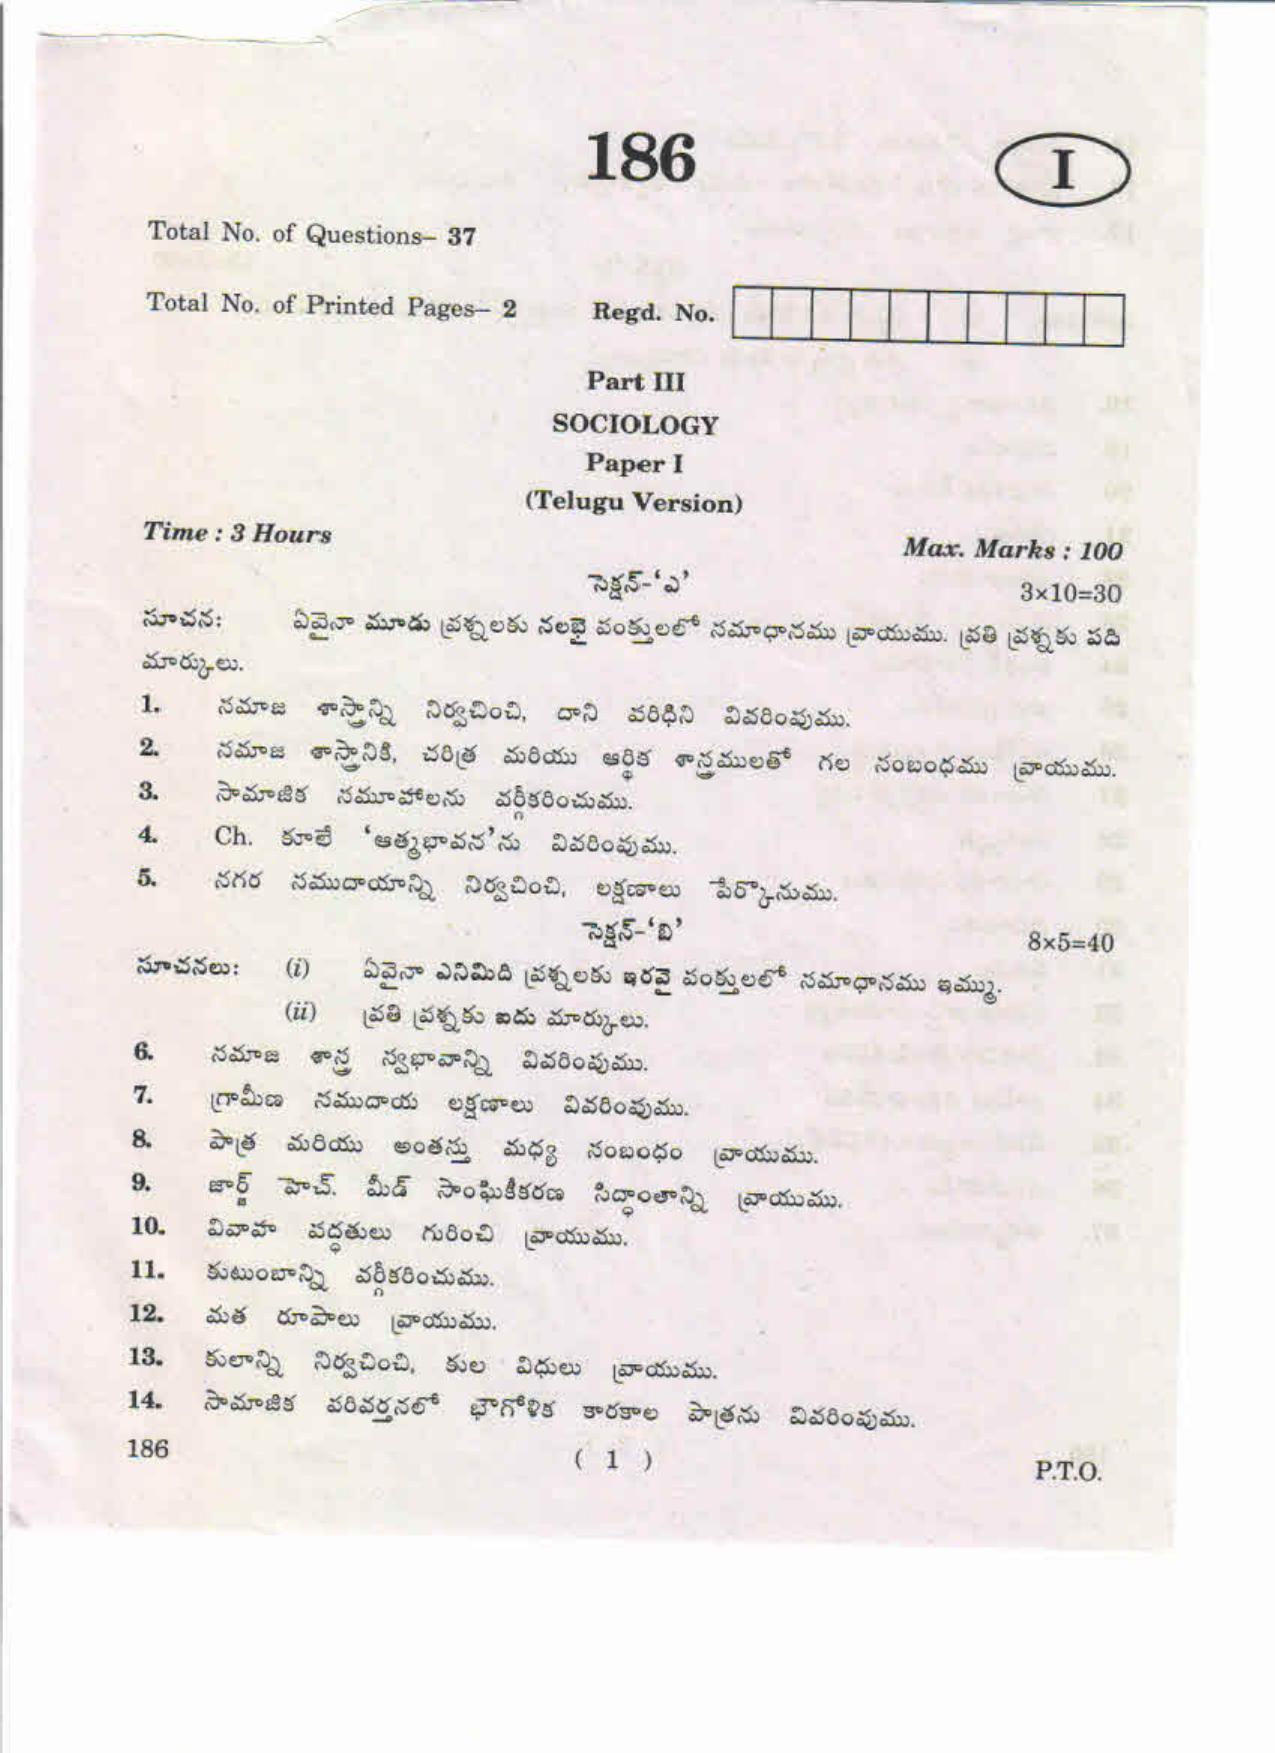 186
I
Total No. of Questions– 37
Total No. of Printed Pages– 2 Regd. No.
Part III
SOCIOLOGY
Paper I
(Telugu Version)
Time : 3 Hours
Max. Marks : 100
సెక్షన్-‘ఎ’
3×10=30
సూచన: ఏవైనా మూడు ప్రశ్నలకు నలభై పంక్తులలో సమాధానము వ్రాయుము. ప్రతి ప్రశ్నకు పది
మార్కులు.
1. సమాజ శాస్త్రాన్ని నిర్వచించి, దాని పరిధిని వివరింపుము.
2. సమాజ శాస్త్రానికి, చరిత్ర మరియు ఆర్థిక శాస్త్రములతో గల సంబంధము వ్రాయుము.
3. సామాజిక సమూహాలను వర్గీకరించుము.
4. Ch. కూలే ‘ఆత్మభావన’ను వివరింపుము.
5. నగర సముదాయాన్ని నిర్వచించి, లక్షణాలు పేర్కొనుము.
సెక్షన్-‘బి’
8×5=40
సూచనలు: (i) ఏవైనా ఎనిమిది ప్రశ్నలకు ఇరవై పంక్తులలో సమాధానము ఇమ్ము.
(ii) ప్రతి ప్రశ్నకు ఐదు మార్కులు.
6. సమాజ శాస్త్ర స్వభావాన్ని వివరింపుము.
7. గ్రామీణ సముదాయ లక్షణాలు వివరింపుము.
8. పాత్ర మరియు అంతస్తు మధ్య సంబంధం వ్రాయుము.
9. జార్జ్ హెచ్. మీడ్ సాంఘికీకరణ సిద్ధాంతాన్ని వ్రాయుము.
10. వివాహ పద్ధతులు గురించి వ్రాయుము.
11. కుటుంబాన్ని వర్గీకరించుము.
12. మత రూపాలు వ్రాయుము.
13. కులాన్ని నిర్వచించి, కుల విధులు వ్రాయుము.
14. సామాజిక పరివర్తనలో భౌగోళిక కారకాల పాత్రను వివరింపుము.
186
( 1 )
P.T.O.